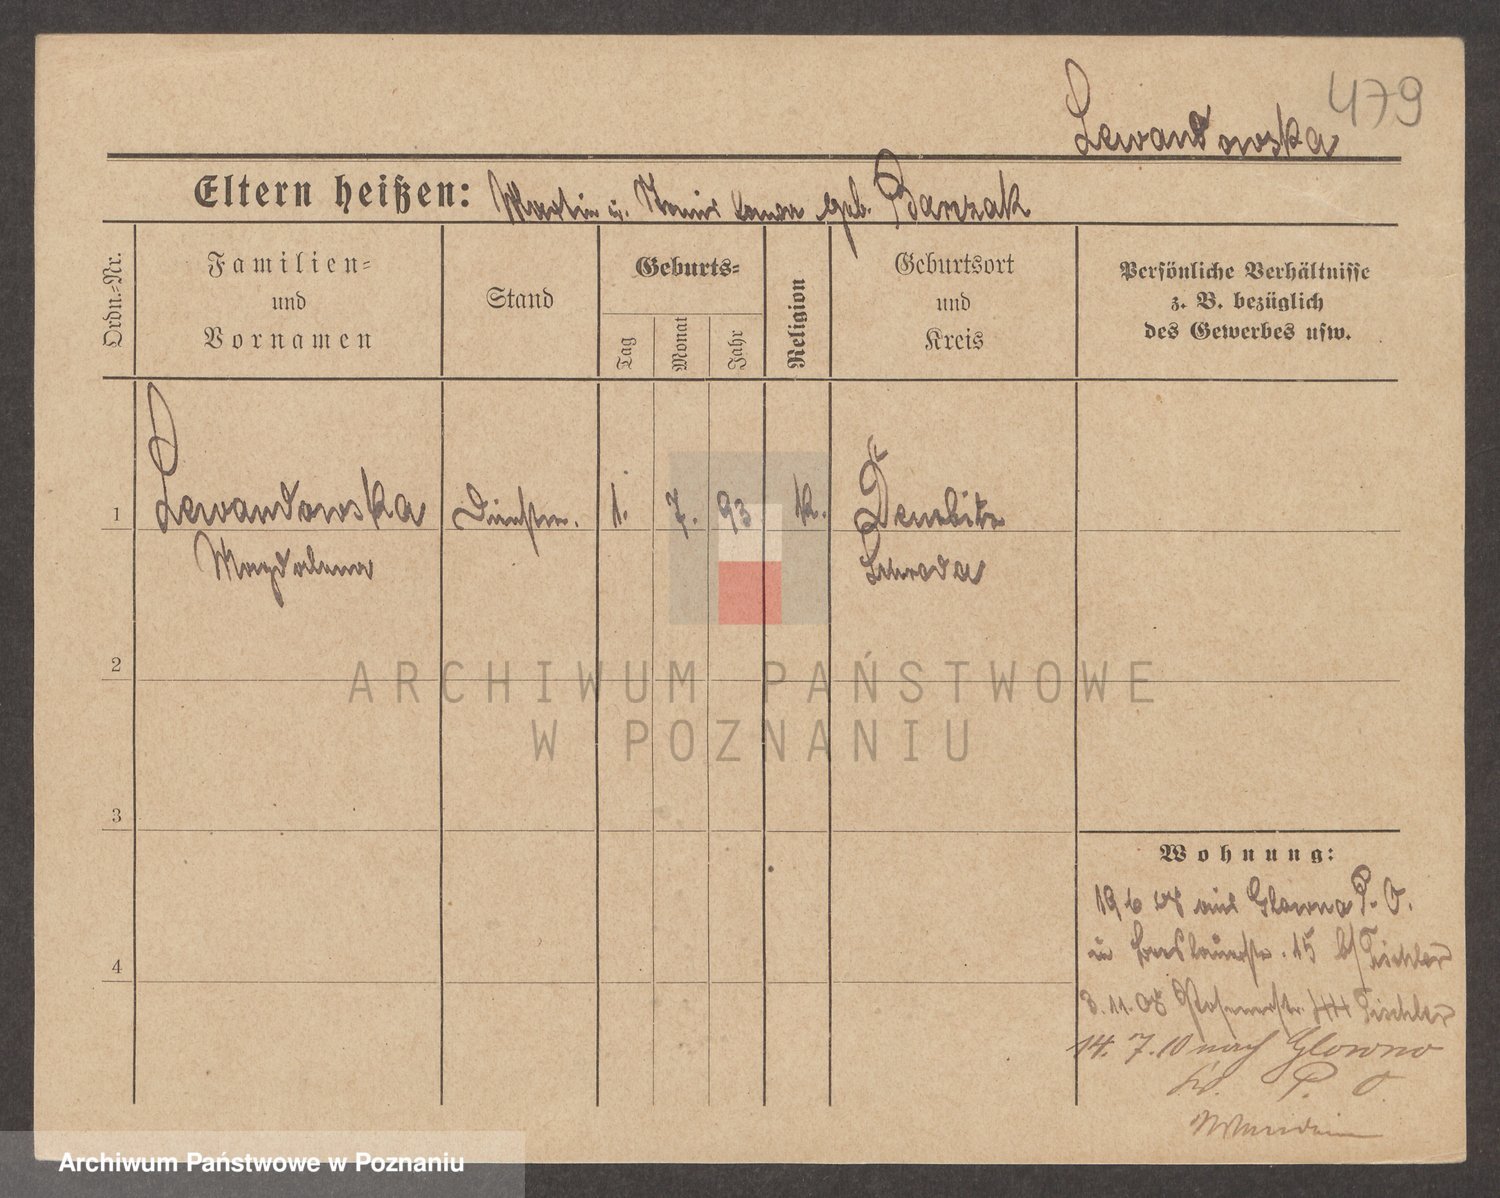 479
Lewandowska
Eltern heißen: Martin u. geb. Barczak
Ordn.=Nr.
Familien=
und
Vornamen
Stand
Geburts=
Tag
Monat
Jahr
Religion
Geburtsort
und
Kreis
Persönliche Verhältnisse
z. B. bezüglich
des Gewerbes usw.
1
Lewandowska Dienstm. 1. 7. 93 k.
Magdalena
Schroda
2
3
4
Wohnung:
19 6 08 aus Glowna P. O.
15 b/ Tischler
3. 11. 08 Posenerstr. Tischler
14. 7. 10 nach Glowno
P. O.
ARCHIWUM PAŃSTWOWE
W POZNANIU
Archiwum Państwowe w Poznaniu